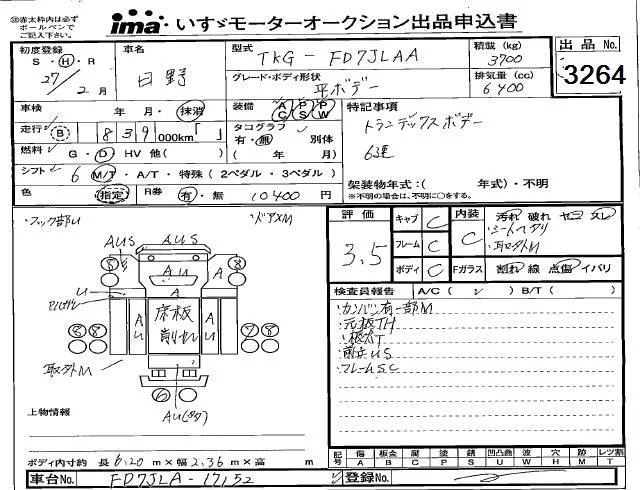 ※赤太枠内は必ず
ボールペンで
ご記入下さい。
ima いすゞモーターオークション出品申込書
初度登録
S・H・R
27/2月
車名
日野
型式
TKG-FD7JLAA
積載 (kg)
3700
出品 No.
3264
グレード・ボディ形状
平ボデー
排気量 (cc)
6400
車検
年 月・抹消
装備
A/C P/S P/W
特記事項
トランテックスボデー
6速
走行
B 839 000km「 」
タコグラフ
有・無 別体
( 年 月)
燃料
G・D HV 他( )
シフト
6 M/T・A/T・特殊 (2ペダル・3ペダル)
架装物年式:( 年式)・不明
※不明の場合は、不明に○をする。
色
指定
R券
有・無 10400円
・フック部U
・ドアXM
評価
3.5
キャブ C
フレーム C
ボディ C
内装 C
Fガラス
汚れ 破れ ヤニ スレ
・シートヘタリ
・取外M
割れ 線 点傷 イバリ
AUS
AUS
AU
A
A
U
床板
削れ
AU
AU
取外M
AU
8 8
8 8
6
検査員報告
A/C( ) B/T( )
・カンバン有一部M
・元板TH
・根太T
・前立US
・フレームSC
上物情報
ボディ内寸約 長 6.20 m×幅 2.36 m×高 m
記号
傷 板金 腐 塗 錆 凹凸曲 波 穴 跡 レツ割
A B C P S U W H M T
車台No.
FD7JLA-17152
登録No.